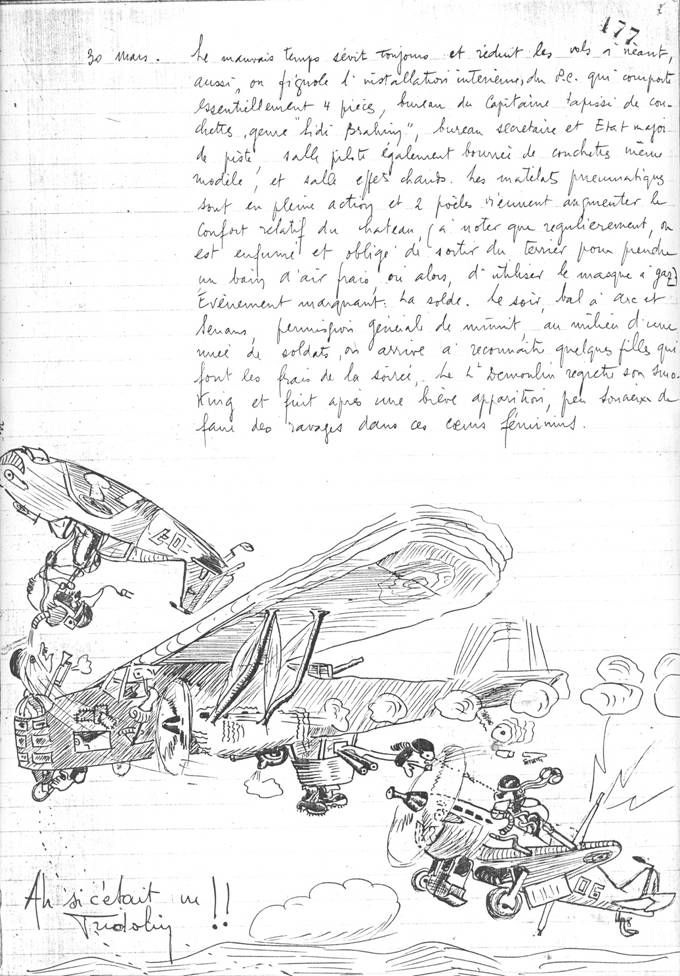 177
30 mars. Le mauvais temps sévit toujours et réduit les vols à néant,
aussi, on fignole l'installation intérieure du P.C. qui comporte
essentiellement 4 pièces, bureau du Capitaine tapissé de cou-
chettes, genre "Sidi Brahim", bureau secrétaire et Etat major
de piste, salle pilote également bourrée de couchettes même
modèle, et salle effets chauds. Les matelas pneumatiques
sont en pleine action et 2 poêles viennent augmenter le
confort relatif du chateau (à noter que regulièrement, on
est enfumé et obligé de sortir du terrier pour prendre
un bain d'air frais, ou alors, d'utiliser le masque à gaz)
Évènement marquant. La solde. Le soir, bal à Arc et
Senans, permission générale de minuit, au milieu d'une
nuée de soldats, on arrive à reconnaître quelques filles qui
font les frais de la soirée. Le Lt Demoulin regrette son smo-
king et fuit après une brève apparition, peu soucieux de
faire des ravages dans ces cœurs féminins.
Ah si c'était un
Fridolin !!